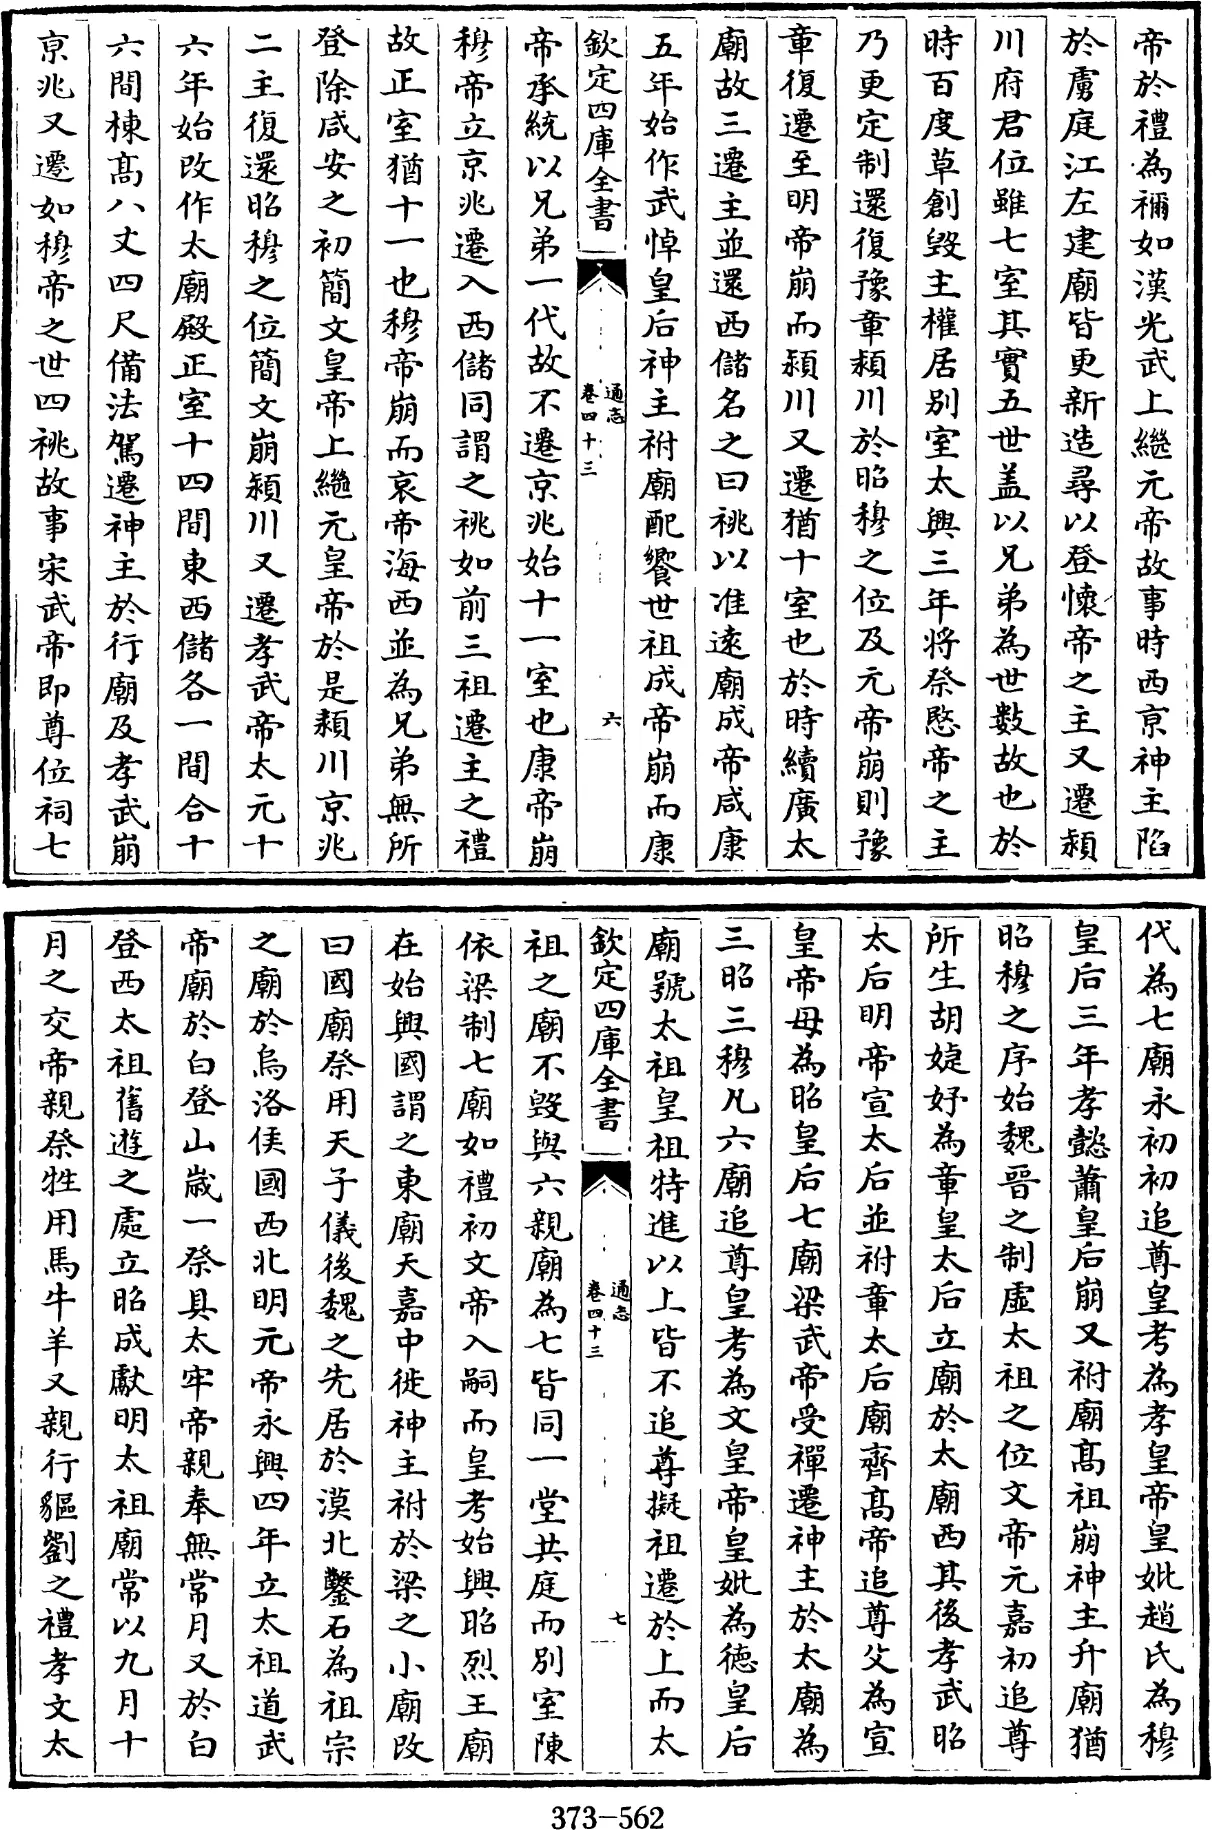 帝於禮為禰如漢光武上繼元帝故事時西京神主陷
於虜庭江左建廟皆更新造尋以登懷帝之主又遷潁
川府君位雖七室其實五世盖以兄弟為世數故也於
時百度草創毀主權居别室太興三年將祭愍帝之主
乃更定制還復豫章潁川於昭穆之位及元帝崩則豫
章復遷至明帝崩而潁川又遷猶十室也於時續廣太
廟故三遷主並還西儲名之曰祧以准逺廟成帝咸康
五年始作武悼皇后神主祔廟配饗世祖成帝崩而康
欽定四庫全書
通志
卷四十三
六
帝承統以兄弟一代故不遷京兆始十一室也康帝崩
穆帝立京兆遷入西儲同謂之祧如前三祖遷主之禮
故正室猶十一也穆帝崩而哀帝海西並為兄弟無所
登除咸安之初簡文皇帝上繼元皇帝於是潁川京兆
二主復還昭穆之位簡文崩潁川又遷孝武帝太元十
六年始改作太廟殿正室十四間東西儲各一間合十
六間棟髙八丈四尺備法駕遷神主於行廟及孝武崩
京兆又遷如穆帝之世四祧故事宋武帝即尊位祠七
代為七廟永初初追尊皇考為孝皇帝皇妣趙氏為穆
皇后三年孝懿蕭皇后崩又祔廟髙祖崩神主升廟猶
昭穆之序始魏晉之制虛太祖之位文帝元嘉初追尊
所生胡婕妤為章皇太后立廟於太廟西其後孝武昭
太后明帝宣太后並祔章太后廟齊髙帝追尊父為宣
皇帝母為昭皇后七廟梁武帝受禪遷神主於太廟為
三昭三穆凡六廟追尊皇考為文皇帝皇妣為德皇后
廟號太祖皇祖特進以上皆不追尊擬祖遷於上而太
欽定四庫全書
通志
卷四十三
七
祖之廟不毀與六親廟為七皆同一堂共庭而别室陳
依梁制七廟如禮初文帝入嗣而皇考始興昭烈王廟
在始興國謂之東廟天嘉中徙神主祔於梁之小廟改
曰國廟祭用天子儀後魏之先居於漠北鑿石為祖宗
之廟於烏洛侯國西北明元帝永興四年立太祖道武
帝廟於白登山歳一祭具太牢帝親奉無常月又於白
登西太祖舊遊之處立昭成獻明太祖廟常以九月十
月之交帝親祭牲用馬牛羊又親行貙劉之禮孝文太
373-562